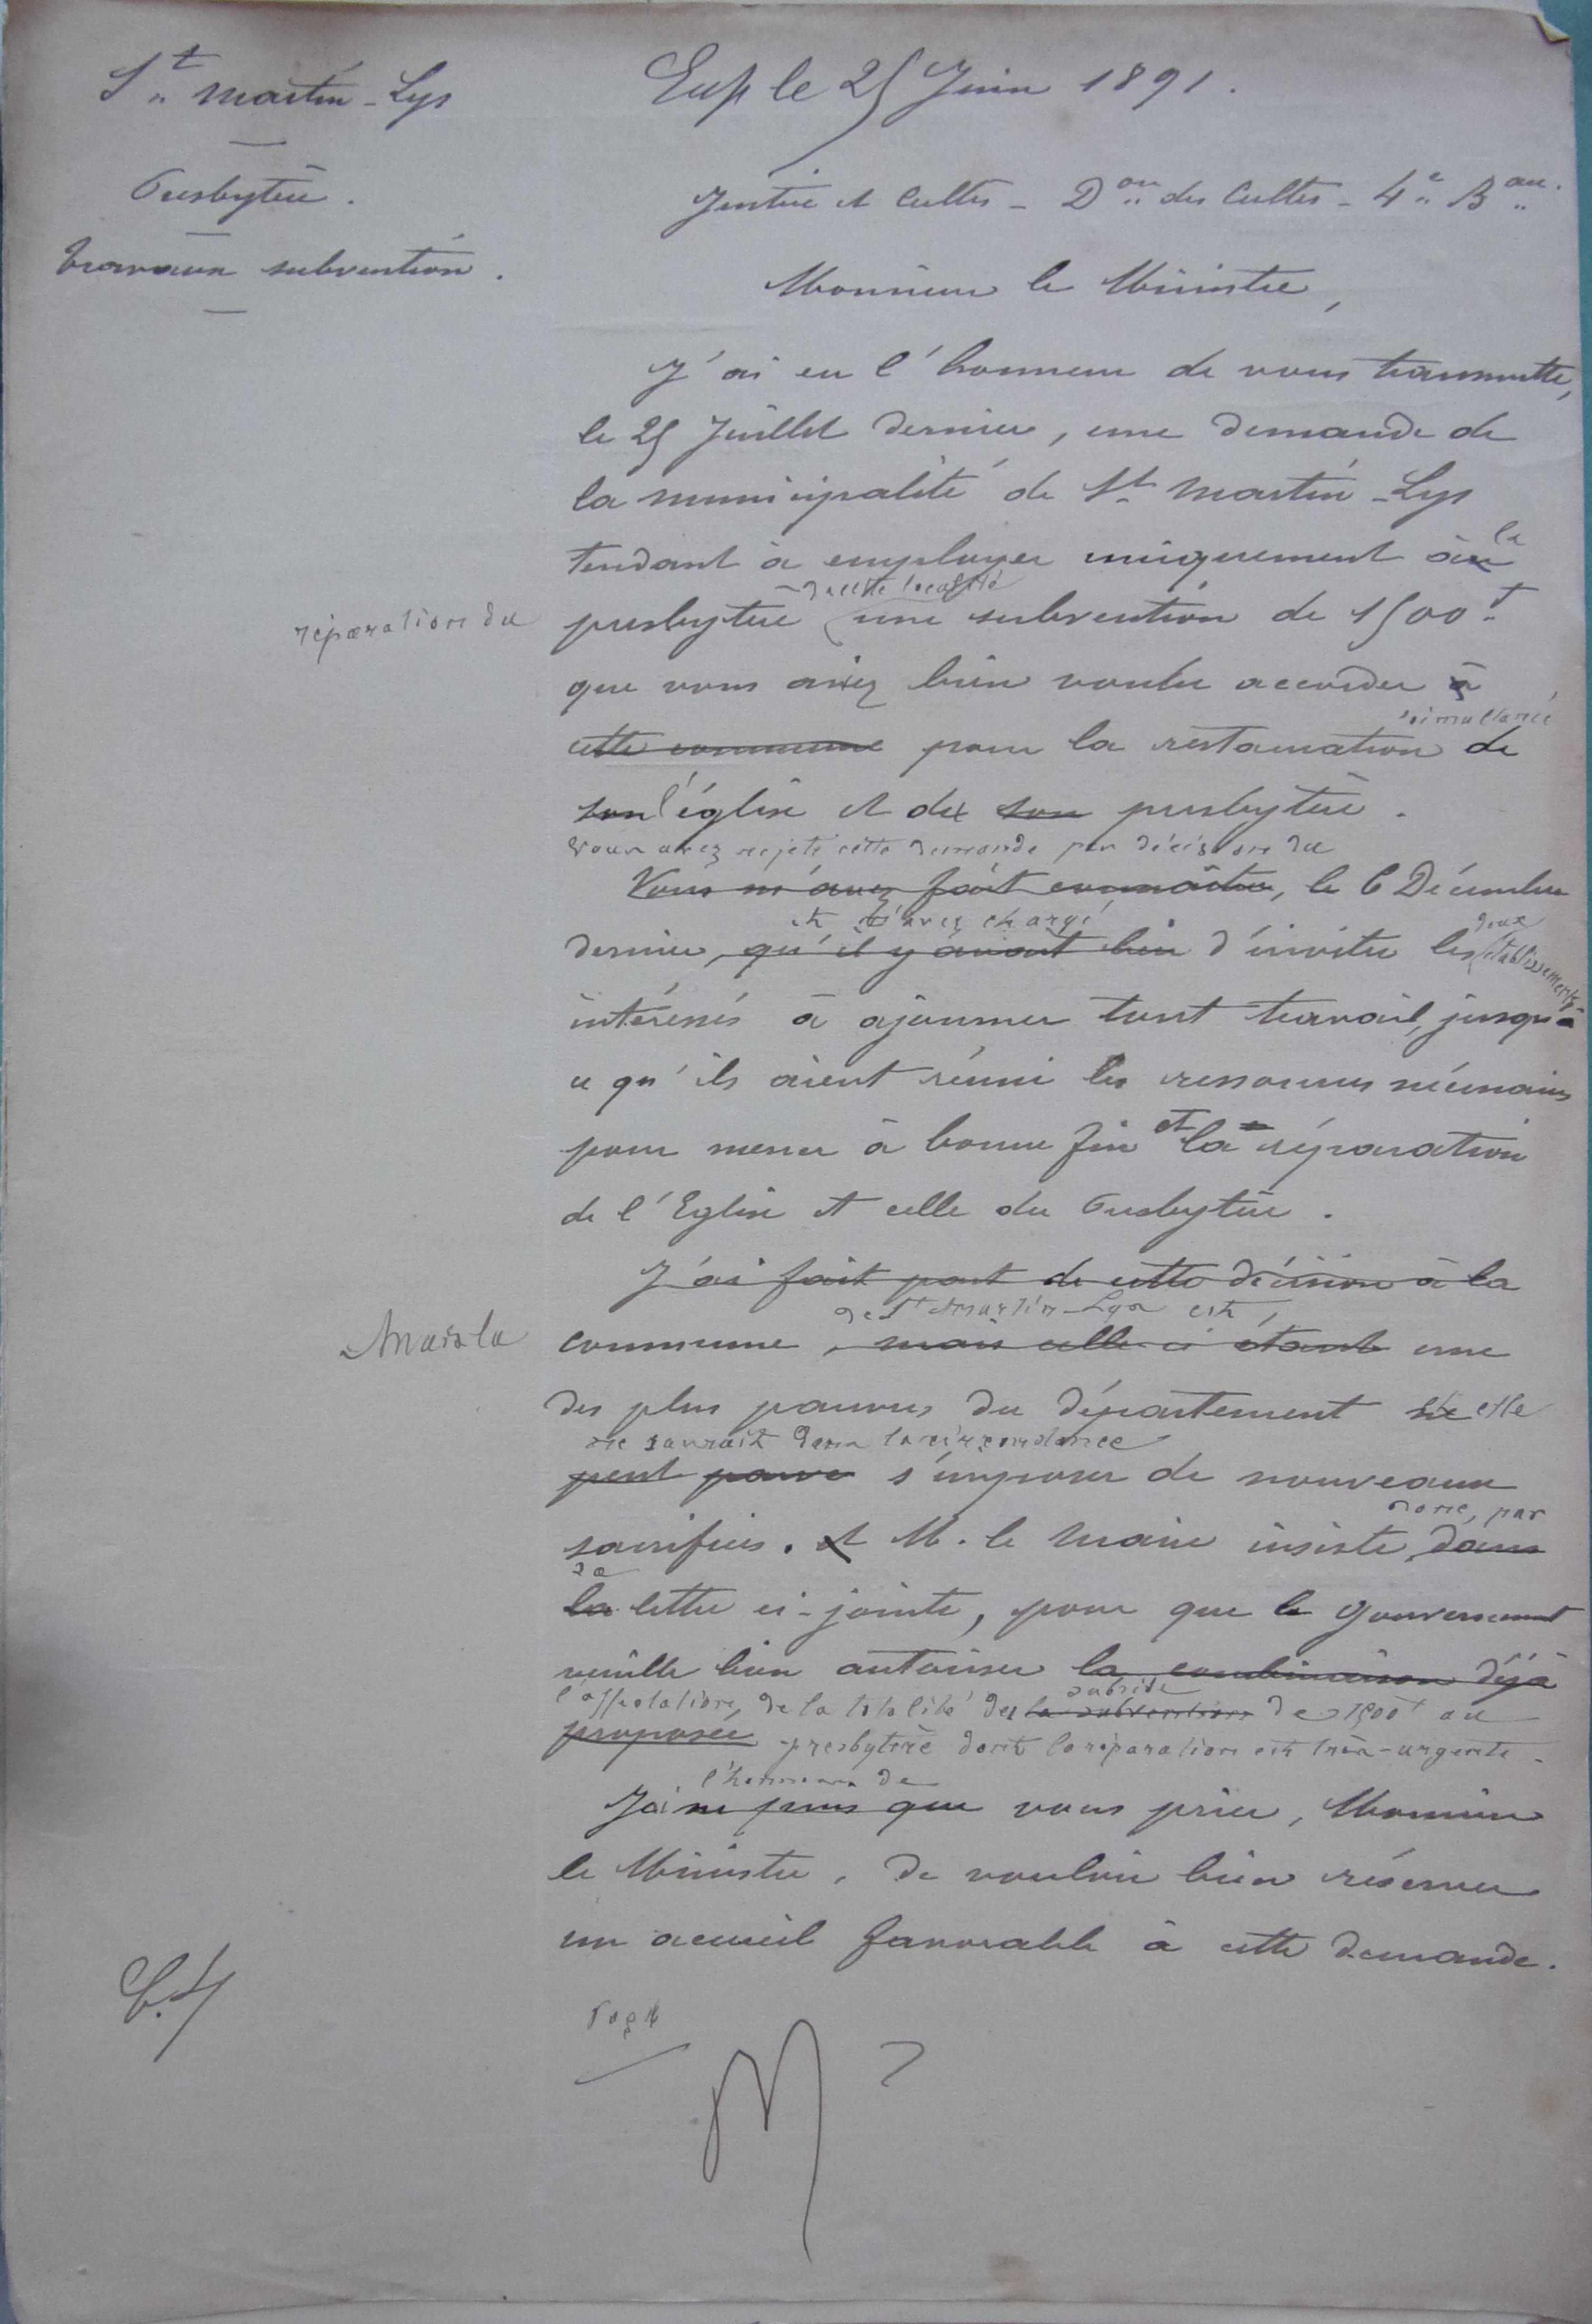 St Martin-Lys
Presbytère.
Travaux subvention.
Exp le 25 Juin 1891.
Justice et Cultes - Don des Cultes - 4e Bau.
Monsieur le Ministre,
J'ai eu l'honneur de vous transmettre,
le 25 Juillet dernier, une demande de
la municipalité de St Martin-Lys
tendant à employer uniquement à la
réparation du
de cette localité
presbytère une subvention de 1500 f
que vous aviez bien voulu accorder à
simultanée
cette commune pour la restauration de
son l'église et du son presbytère.
Vous avez rejeté cette demande par décision du
Vous m'avez fait connaître, le 6 Décembre
et m'avez chargé
deux
dernier, qu'il y avait lieu d'inviter les établissements
intéressés à ajourner tout travail, jusqu'à
ce qu'ils aient réuni les ressources nécessaires
pour mener à bonne fin et la réparation
de l'Eglise et celle du Presbytère.
J'ai fait part de cette décision à la
de St Martin-Lys est,
Mais la
commune, mais celle-ci étant une
des plus pauvres du département elle
ne saurait dans la circonstance
peut s'imposer de nouveaux
donc, par
sacrifices. et M. le Maire insiste dans
sa
la lettre ci-jointe, pour que le Gouvernement
veuille bien autoriser la combinaison déjà
subside
l'affectation de la totalité de la subvention de 1500 f au
proposée presbytère dont la réparation est très-urgente.
l'honneur de
J'ai ne puis que vous prier, Monsieur
le Ministre, de vouloir bien réserver
un accueil favorable à cette demande.